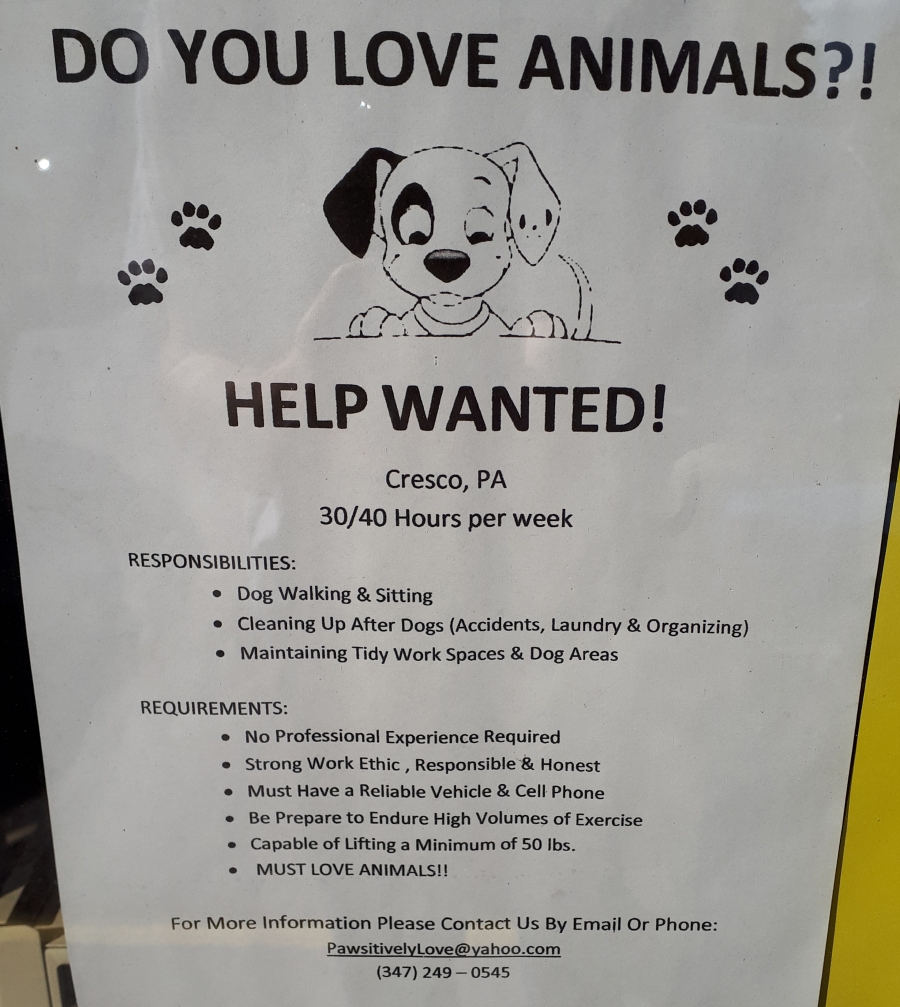 DO YOU LOVE ANIMALS?!
HELP WANTED!
Cresco, PA
30/40 Hours per week
RESPONSIBILITIES:
• Dog Walking & Sitting
• Cleaning Up After Dogs (Accidents, Laundry & Organizing)
• Maintaining Tidy Work Spaces & Dog Areas
REQUIREMENTS:
• No Professional Experience Required
• Strong Work Ethic , Responsible & Honest
• Must Have a Reliable Vehicle & Cell Phone
• Be Prepare to Endure High Volumes of Exercise
• Capable of Lifting a Minimum of 50 lbs.
• MUST LOVE ANIMALS!!
For More Information Please Contact Us By Email Or Phone:
PawsitivelyLove@yahoo.com
(347) 249 – 0545